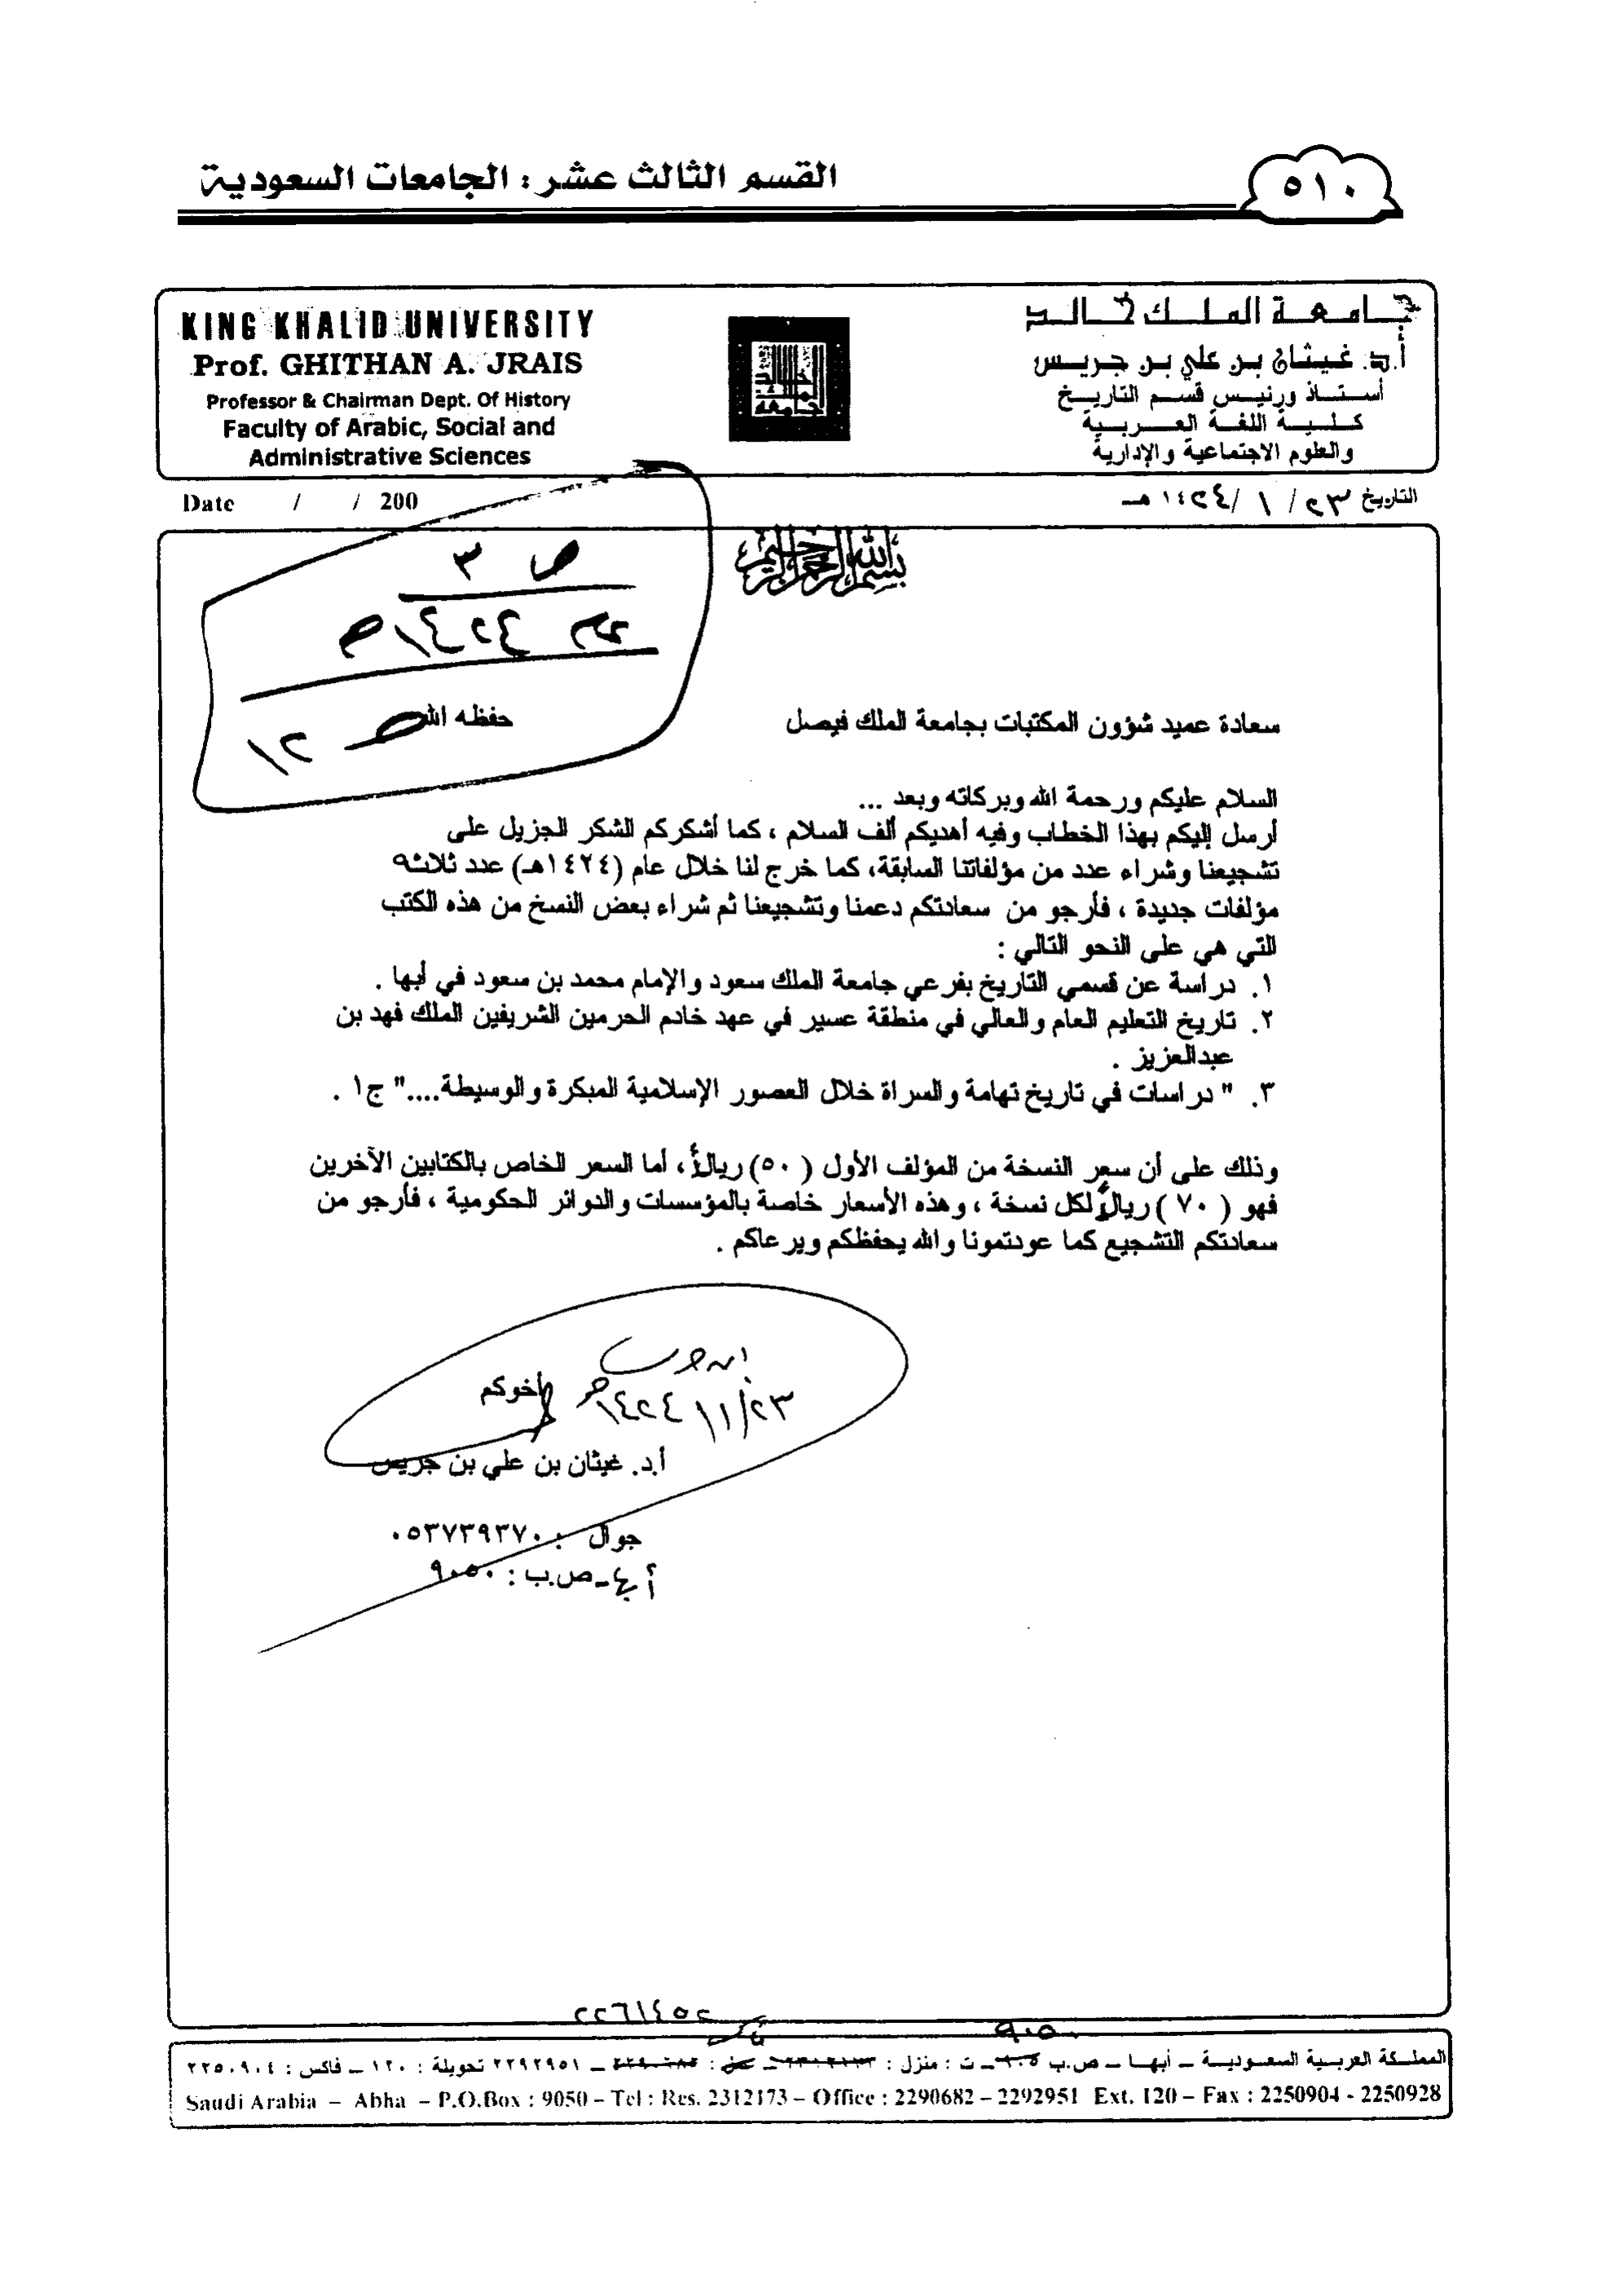 ٥١٠
القسم الثالث عشر: الجامعات السعودية
جامعة الملك خالد
أ.د. غيثان بن علي بن جريس
أستاذ ورئيس قسم التاريخ
كلية اللغة العربية
والعلوم الاجتماعية والإدارية
جامعة الملك خالد
KING KHALID UNIVERSITY
Prof. GHITHAN A. JRAIS
Professor & Chairman Dept. Of History
Faculty of Arabic, Social and
Administrative Sciences
التاريخ ٢٣/ ١ /١٤٢٤هـ
Date / / 200
بسم الله الرحمن الرحيم
ص ٣
سعادة عميد شؤون المكتبات بجامعة الملك فيصل حفظه الله
السلام عليكم ورحمة الله وبركاته وبعد ...
أرسل إليكم بهذا الخطاب وفيه أهديكم ألف السلام ، كما أشكركم الشكر الجزيل على
تشجيعنا وشراء عدد من مؤلفاتنا السابقة، كما خرج لنا خلال عام (١٤٢٤هـ) عدد ثلاثة
مؤلفات جديدة ، فأرجو من سعادتكم دعمنا وتشجيعنا ثم شراء بعض النسخ من هذه الكتب
التي هي على النحو التالي :
١. دراسة عن قسمي التاريخ بفرعي جامعة الملك سعود والإمام محمد بن سعود في أبها .
٢. تاريخ التعليم العام والعالي في منطقة عسير في عهد خادم الحرمين الشريفين الملك فهد بن
عبدالعزيز .
٣. " دراسات في تاريخ تهامة والسراة خلال العصور الإسلامية المبكرة والوسيطة...." ج١ .
وذلك على أن سعر النسخة من المؤلف الأول (٥٠) ريالاً، أما السعر الخاص بالكتابين الآخرين
فهو (٧٠) ريالاً لكل نسخة ، وهذه الأسعار خاصة بالمؤسسات والدوائر الحكومية ، فأرجو من
سعادتكم التشجيع كما عودتمونا والله يحفظكم ويرعاكم .
أخوكم
٢٣/١١/١٤٢٤هـ
أ.د. غيثان بن علي بن جريس
جوال : ٠٥٣٧٣٩٣٧٠
أبها- ص.ب : ٩٠٥٠
٢٢٦١٤٥٢
٩٠٥٠
المملكة العربية السعودية – أبها – ص.ب – ت : منزل : – ٢٢٩٢٩٥١ تحويلة : ١٢٠ – فاكس : ٢٢٥٠٩٠٤
Saudi Arabia – Abha – P.O.Box : 9050 – Tel : Res. 2312173 – Office : 2290682 – 2292951 Ext. 120 – Fax : 2250904 - 2250928